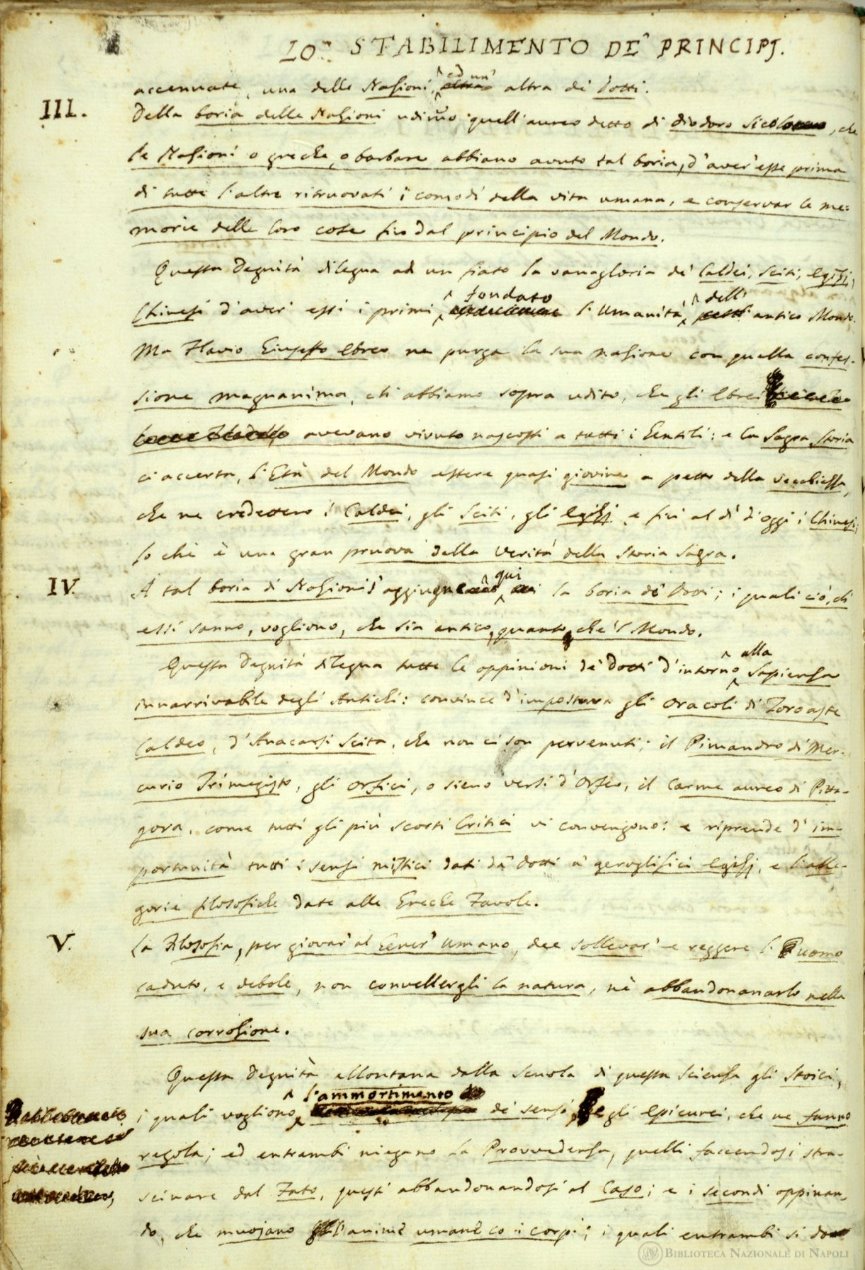 LO STABILIMENTO DE' PRINCIPJ.
accennate, una delle Nasioni, ed un' altra de' Dotti.
III. Della boria delle Nasioni udimmo quell'aureo detto di Diodoro Sicolo, che
le Nasioni o greche, o barbare abbiano avuto tal boria, d'aver' esse prima
di tutte l'altre ritruovati i comodi della vita umana, e conservar le me-
morie delle loro cose fin dal principio del Mondo.
Questa Degnità dilegua ad un fiato la vanagloria de' Caldei, Sciti, Egizj,
Chinesi d'aver' essi i primi fondato l'Umanità dell' antico Mondo.
Ma Flavio Giuseffo Ebreo ne purga la sua nasione con quella confes-
sione magnanima, ch' abbiamo sopra udito, che gli Ebrei
avevano vivuto nascosti a tutti i Gentili: e la Sagra Storia
ci accerta, l'Età del Mondo essere quasi giovine a petto della vecchiessa,
che ne credettero i Caldei, gli Sciti, gli Egizj, e fin al dì d'oggi i Chinesi;
lo chè è una gran pruova della verità della Storia Sagra.
IV. A tal boria di Nasioni s'aggiugne qui la boria de' Dotti; i quali ciò, ch'
essi sanno, vogliono, che sia antico, quanto che 'l Mondo.
Questa Degnità dilegua tutte le oppinioni de' Dotti d'intorno alla Sapiensa
innarrivabile degli Antichi: convince d'impostura gli Oracoli di Zoroaste
Caldeo, d'Anacarsi Scita, che non ci son pervenuti; il Pimandro di Mer-
curio Trimegisto, gli Orfici, o sieno versi d'Orfeo, il Carme aureo di Pitta-
gora, come tutti gli più scorti Critici vi convengono: e riprende d'im-
portunità tutti i sensi mistici dati da' dotti a' geroglifici Egizj, e l'alle-
gorie filosofiche date alle Greche Favole.
V. La Filosofia, per giovar' al Gener' Umano, dee sollevar' e reggere l'uomo
caduto, e debole, non convellergli la natura, nè abbandonarlo nella
sua corrosione.
Questa Degnità allontana dalla Scuola di questa Sciensa gli Stoici,
i quali vogliono l'ammortimento de' sensi, e gli Epicurei, che ne fanno
regola; ed entrambi niegano la Provvedensa, quelli faccendosi stra-
scinare dal Fato, questi abbandonandosi al Caso; e i secondi oppinan-
do, che muojano l'anime umane co i corpi; i quali entrambi si do
BIBLIOTECA NAZIONALE DI NAPOLI